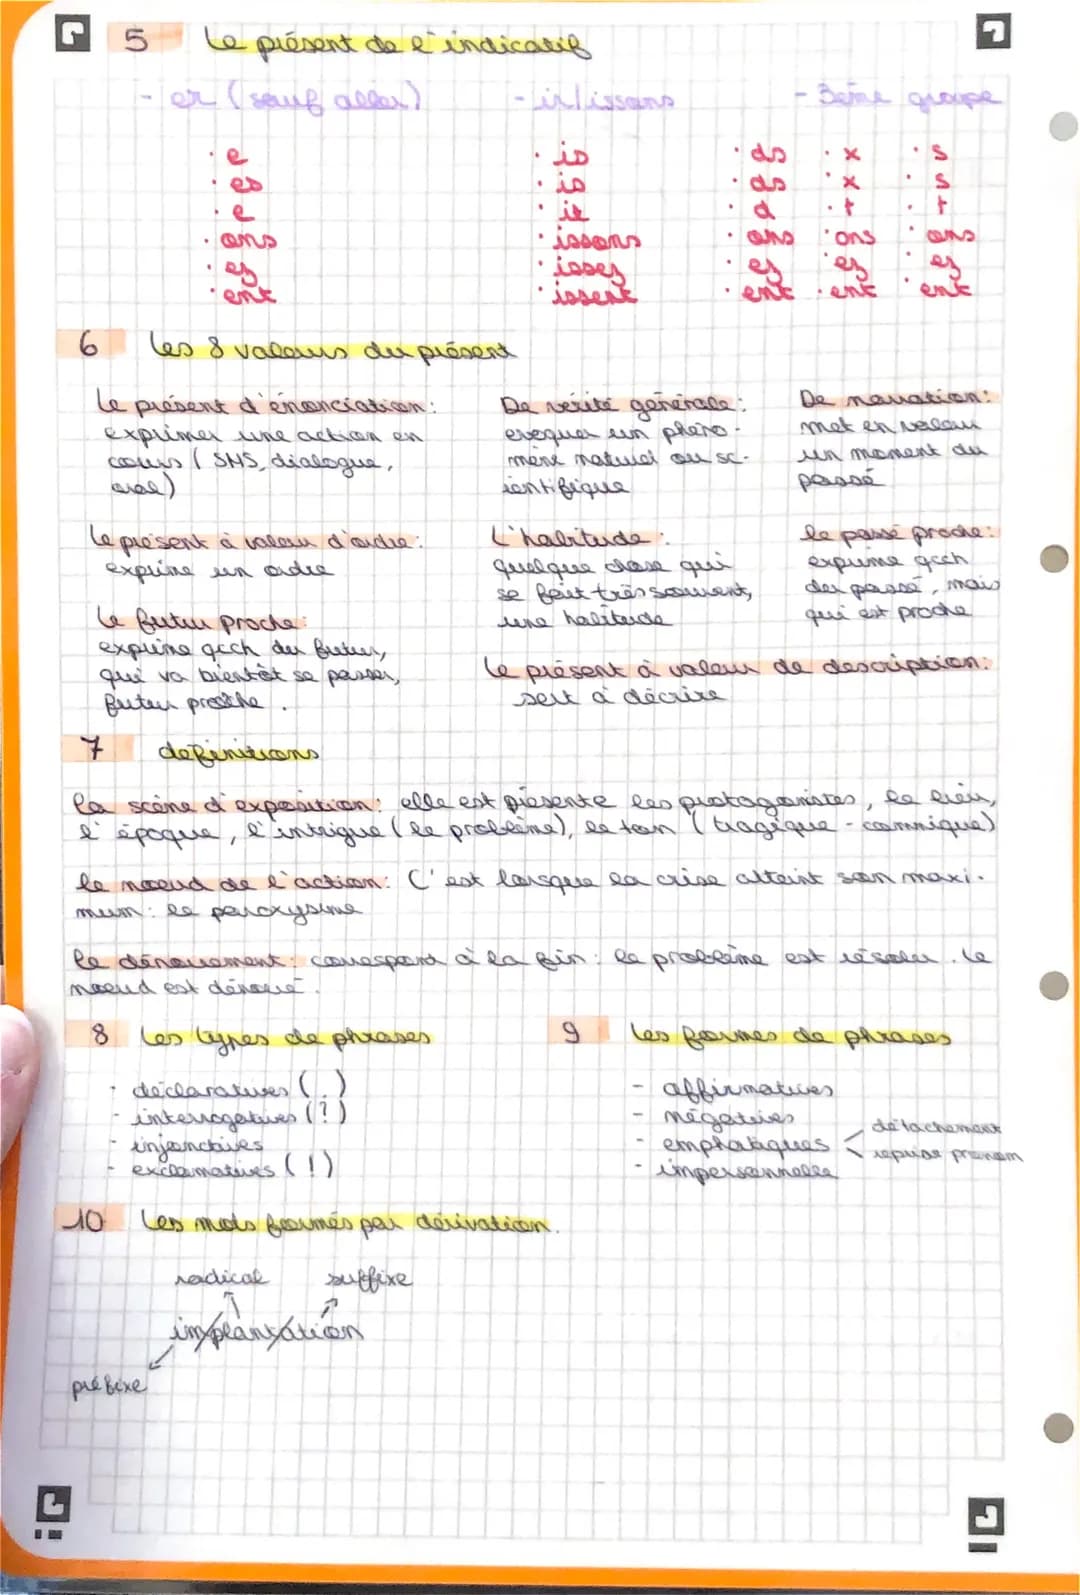 5 Le présent de l'indicatif
- er (sauf aller) - ir/issons - 3eme groupe
· e · is · ds · x · s
· es · is · ds · x · s
· e · it · d · t · t
· ons · issons · ons · ons · ons
· ez · issez · ez · ez · ez
· ent · issent · ent · ent · ent
6 Les 8 valeurs du présent
Le présent d'énonciation:
exprimer une action en
cours (SMS, dialogue,
oral)
De vérité générale:
evoquer un phéno-
mène naturel ou sc-
ientifique
De narration:
met en valeur
un moment du
passé
Le présent à valeur d'ordre:
exprime un ordre
L'habitude:
quelque chose qui
se fait très souvent,
une habitude
le passé proche:
exprime qcch
du passé, mais
qui est proche
Le futur proche:
exprime qcch du futur,
qui va bientôt se passer,
futur proche.
Le présent à valeur de description:
sert à décrire
7 définitions
la scène d'exposition: elle est présente les protagonistes, le lieu,
l'époque, l'intrigue (le problème), le ton (tragique - comnique)
le noeud de l'action: C'est lorsque la crise atteint son maxi-
mum: le paroxysme
le dénouement: correspond à la fin: le problème est résolu. Le
noeud est dénoué.
8 Les types de phrases
- déclaratives (.)
- interrogatives (?)
- injonctives
- exclamatives (!)
9 les formes de phrases
- affirmatives
- négatives
- emphatiques détachement
reprise pronom
- impersonnelle
10 Les mots formés par dérivation.
radical suffixe
im/plant/ation
préfixe